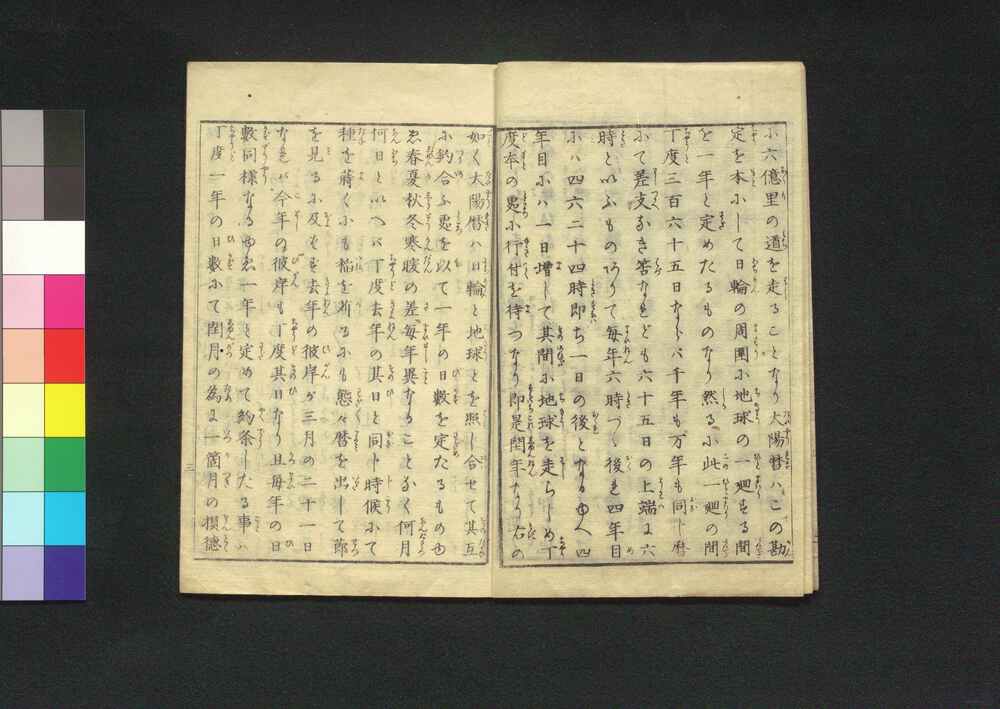 に六億里の道を走ることなり太陽暦ハこの勘
定を本にして日輪の周囲に地球の一廻する間
を一年と定めたるものなり然るに此一廻の間
丁度三百六十五日ならバ千年も万年も同じ暦
にて差支なき筈なれども六十五日の上端に六
時といふものありて毎年六時づゝ後れ四年目
にハ四六二十四時即ち一日の後となるゆへ四
年目にハ一日増して其間に地球を走らしめ丁
度本の処に行付を待つなり即是閏年なり右の
如く太陽暦ハ日輪と地球とを照し合せて其互
に釣合ふ処を以て一年の日数を定たるもの也
ゑ春夏秋冬寒暖の差毎年異なることなく何月
何日といへバ丁度去年の其日と同じ時候にて
種を蒔くにも稲を刈るにも態々暦を出して節
を見るに及ばず去年の彼岸が三月の二十一日
なれバ今年の彼岸も丁度其日なり且毎年の日
数同様なるゆゑ一年と定めて約条したる事ハ
丁度一年の日数にて閏月の為に一箇月の損徳
三